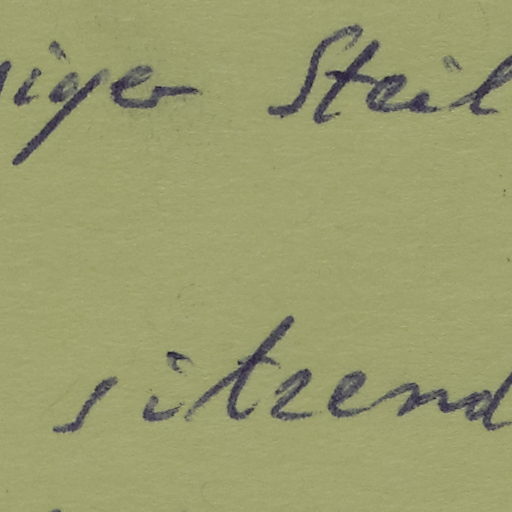 iger Steil
sitzend